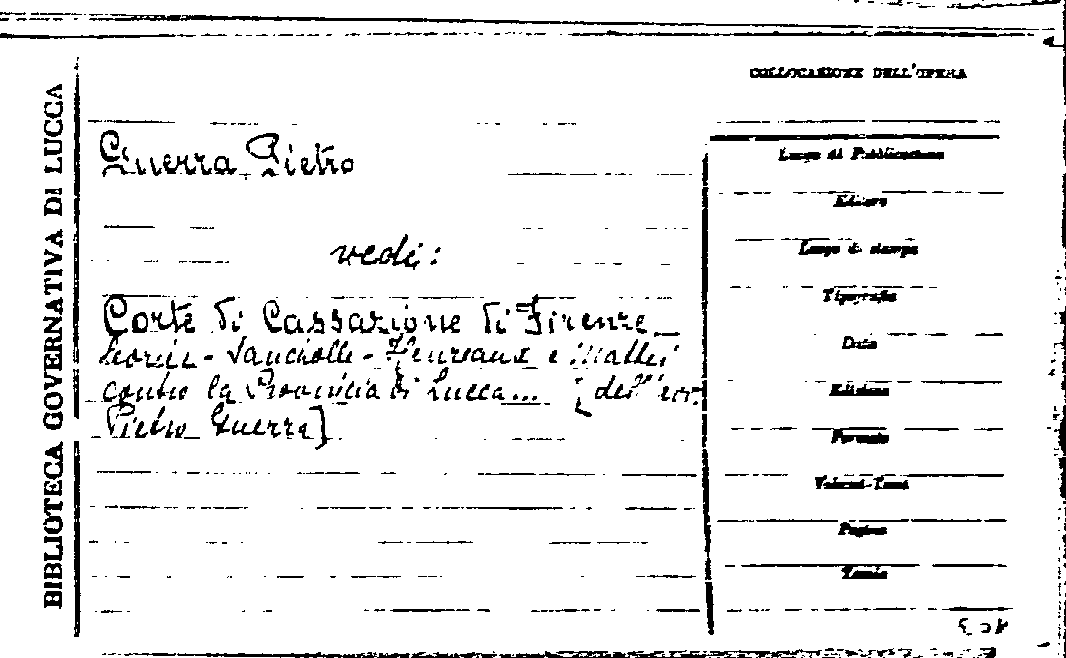 BIBLIOTECA GOVERNATIVA DI LUCCA
COLLOCAZIONE DELL'OPERA
Guerra Pietro
vedi:
Corte di Cassazione di Firenze
- Sancholle - Henreaux e Mattei
contro la Provincia di Lucca... [dell'avv.
Pietro Guerra]
Luogo di Pubblicazione
Editore
Luogo di stampa
Tipografia
Data
Edizione
Formato
Volumi-Tomi
Pagine
Tavole